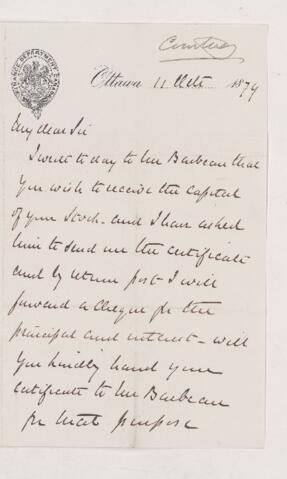 Courtney
FINANCE DEPARTMENT CANADA
Ottawa 11 Octr 1879
My dear Sir
I wrote to day to Mr Barbeau that
you wish to receive the capital
of your Stock - and I have asked
him to send me the certificate
and by return post I will
forward a cheque for the
principal and interest - will
you kindly hand your
certificate to Mr Barbeau
for that purpose